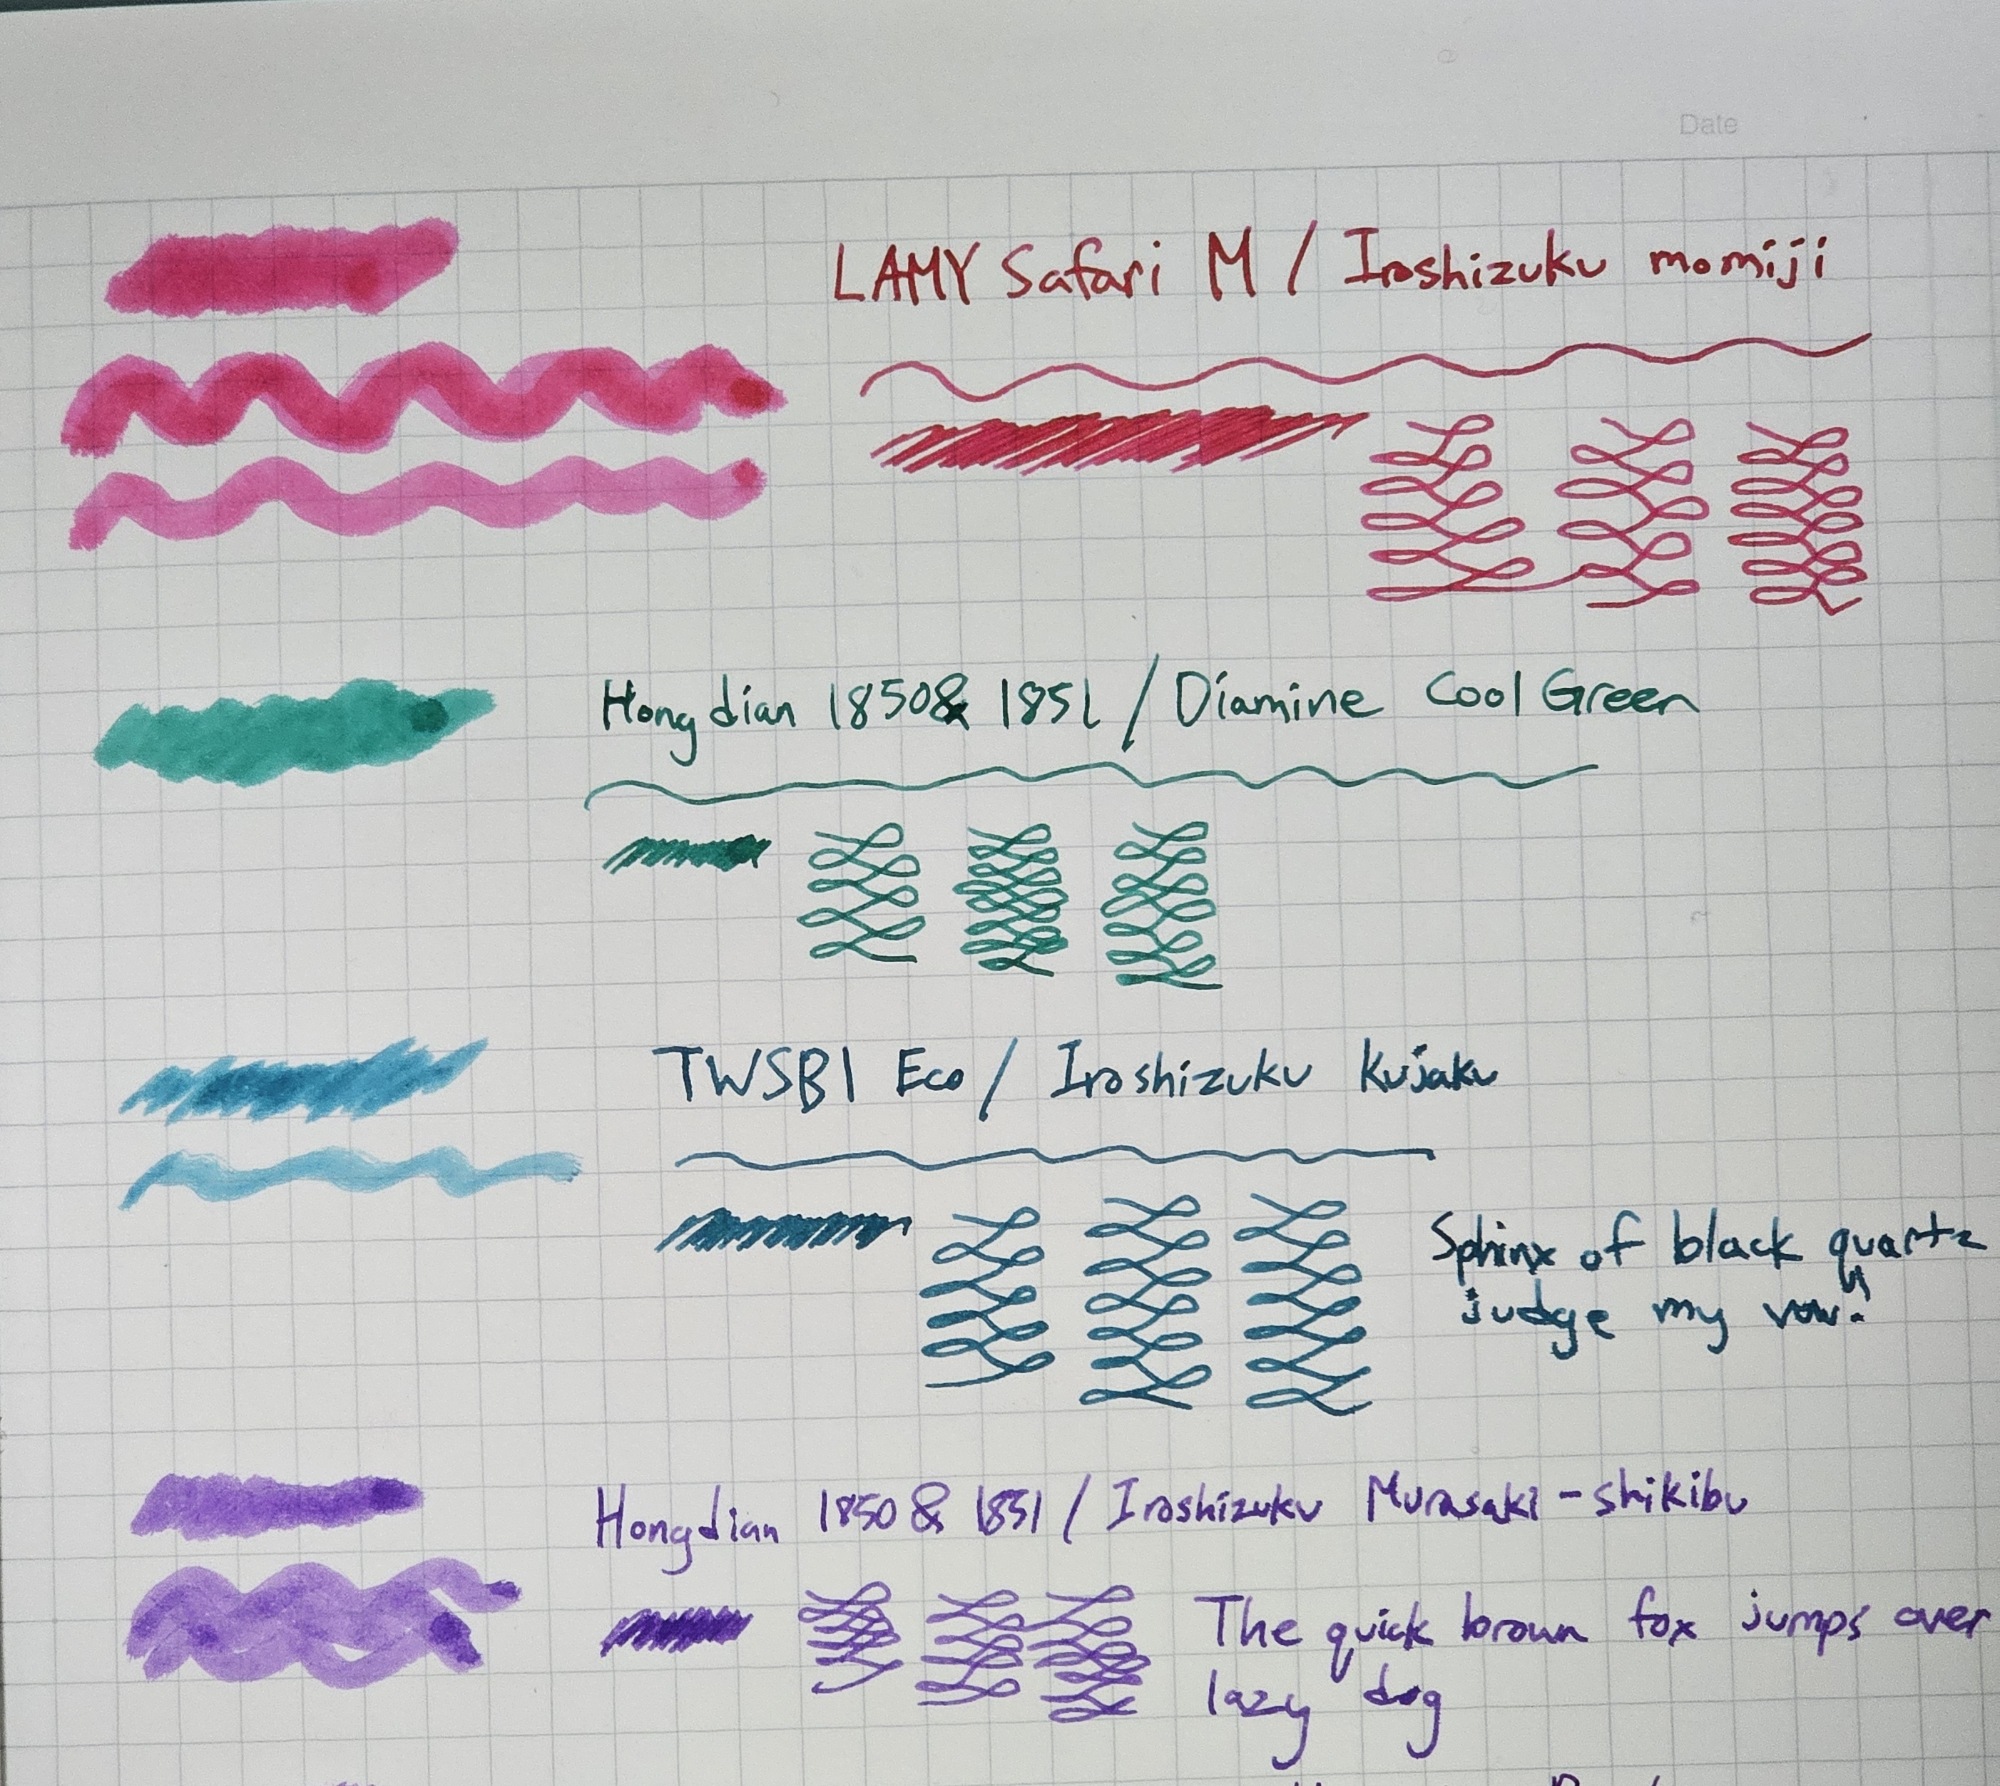 Date
LAMY Safari M / Iroshizuku momiji
Hongdian 1850 & 1851 / Diamine Cool Green
TWSBI Eco / Iroshizuku Kujaku
Sphinx of black quartz
judge my vow!
Hongdian 1850 & 1851 / Iroshizuku Murasaki-shikibu
The quick brown fox jumps over
lazy dog